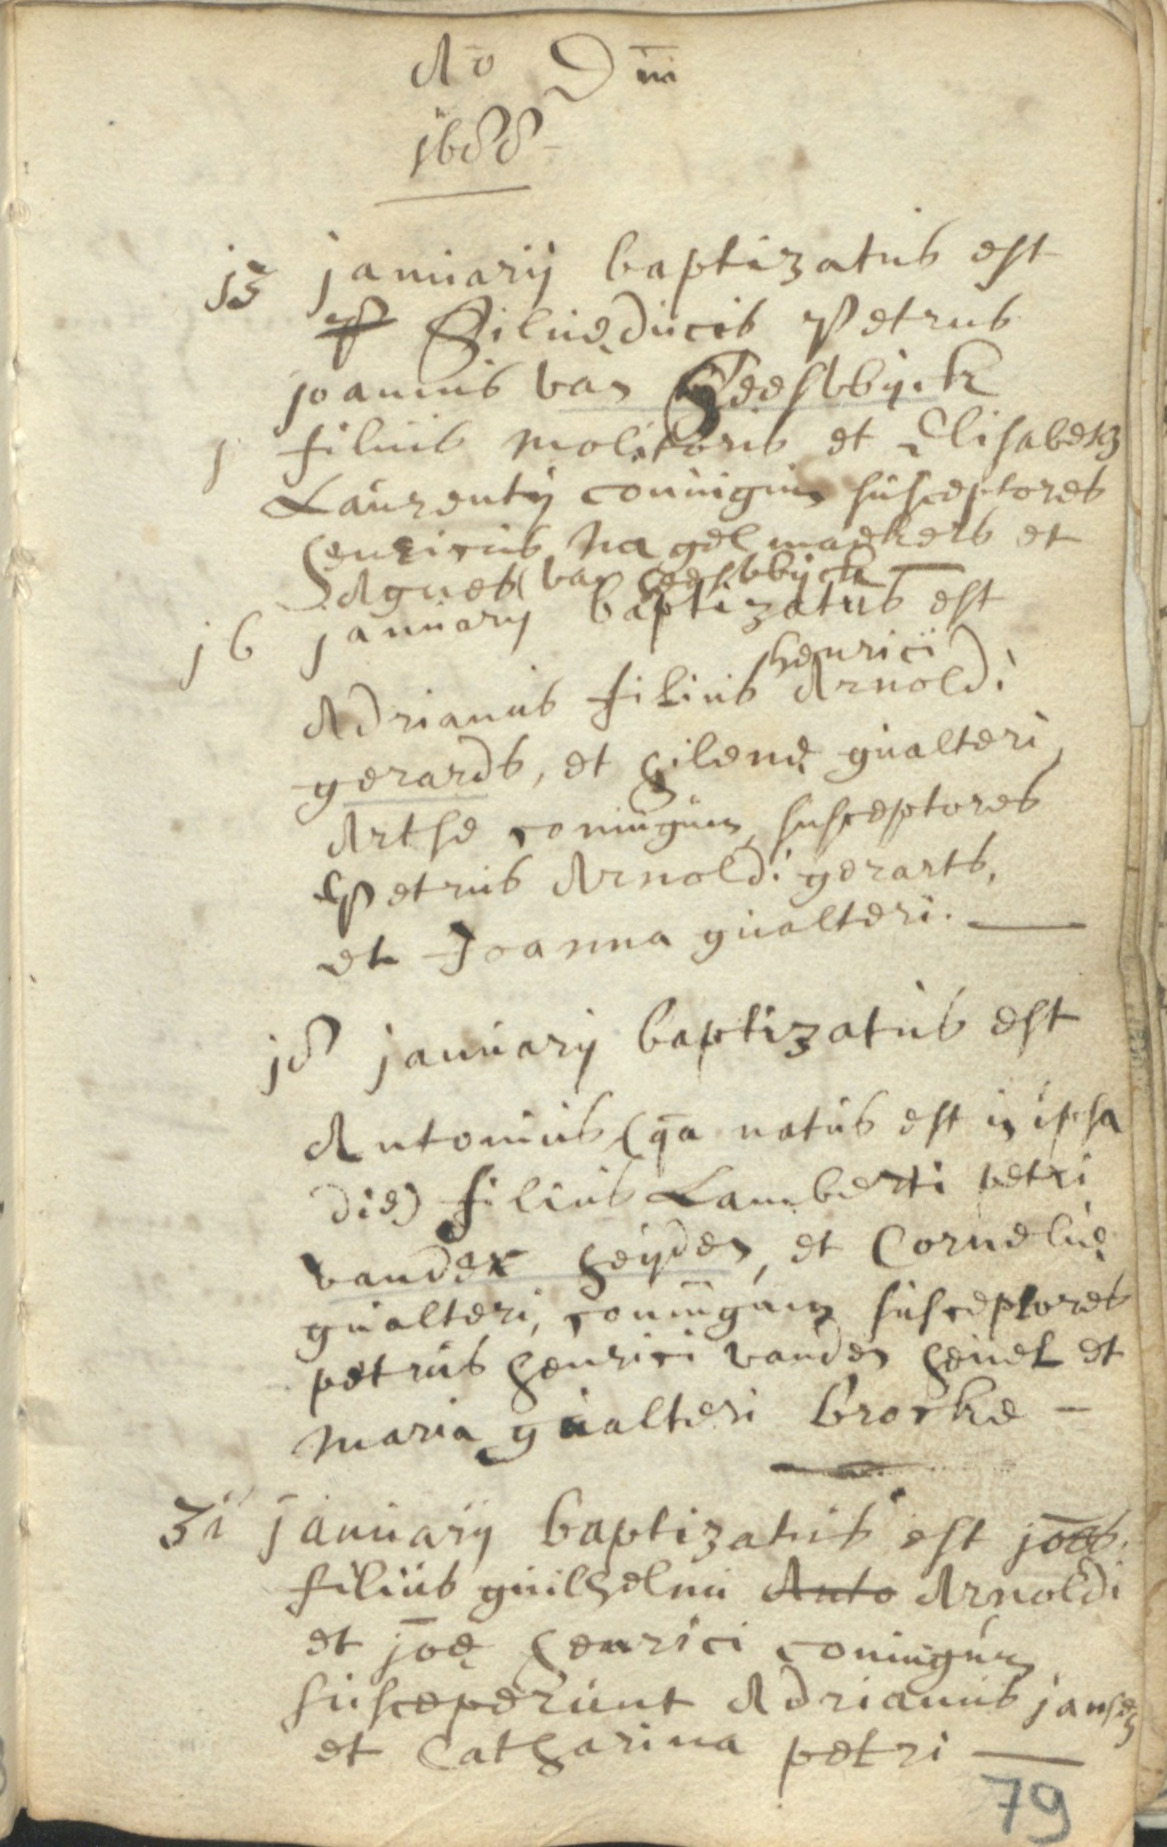 Ao Dni
1688
13 januarij baptizatus est
Silvęducis Petrus
joannis van Heeswijck
filius molitoris et Elisabeth
Laurentij coniugum susceptores
henricus Nagelmaekers et
Agnes van heeswijck
16 januarij baptizatus est
henrici
Adrianus filius Arnoldi
gerards, et hilenę gualteri
Artse coniugum, susceptores
Petrus Arnoldi gerarts,
et Joanna gualteri.
18 januarij baptizatus est
Antonius (qa natus est in ipsa
die) filius Lamberti petri
vander heyden, et Cornelię
gualteri, coniugum susceptores
petrus henrici vanden heuel et
maria gualteri brocke
31 januarij baptizatus est joes.
filius guilhelmi Auto Arnoldi
et joę henrici coniugum
susceperunt Adrianus jansen
et Catharina petri
79